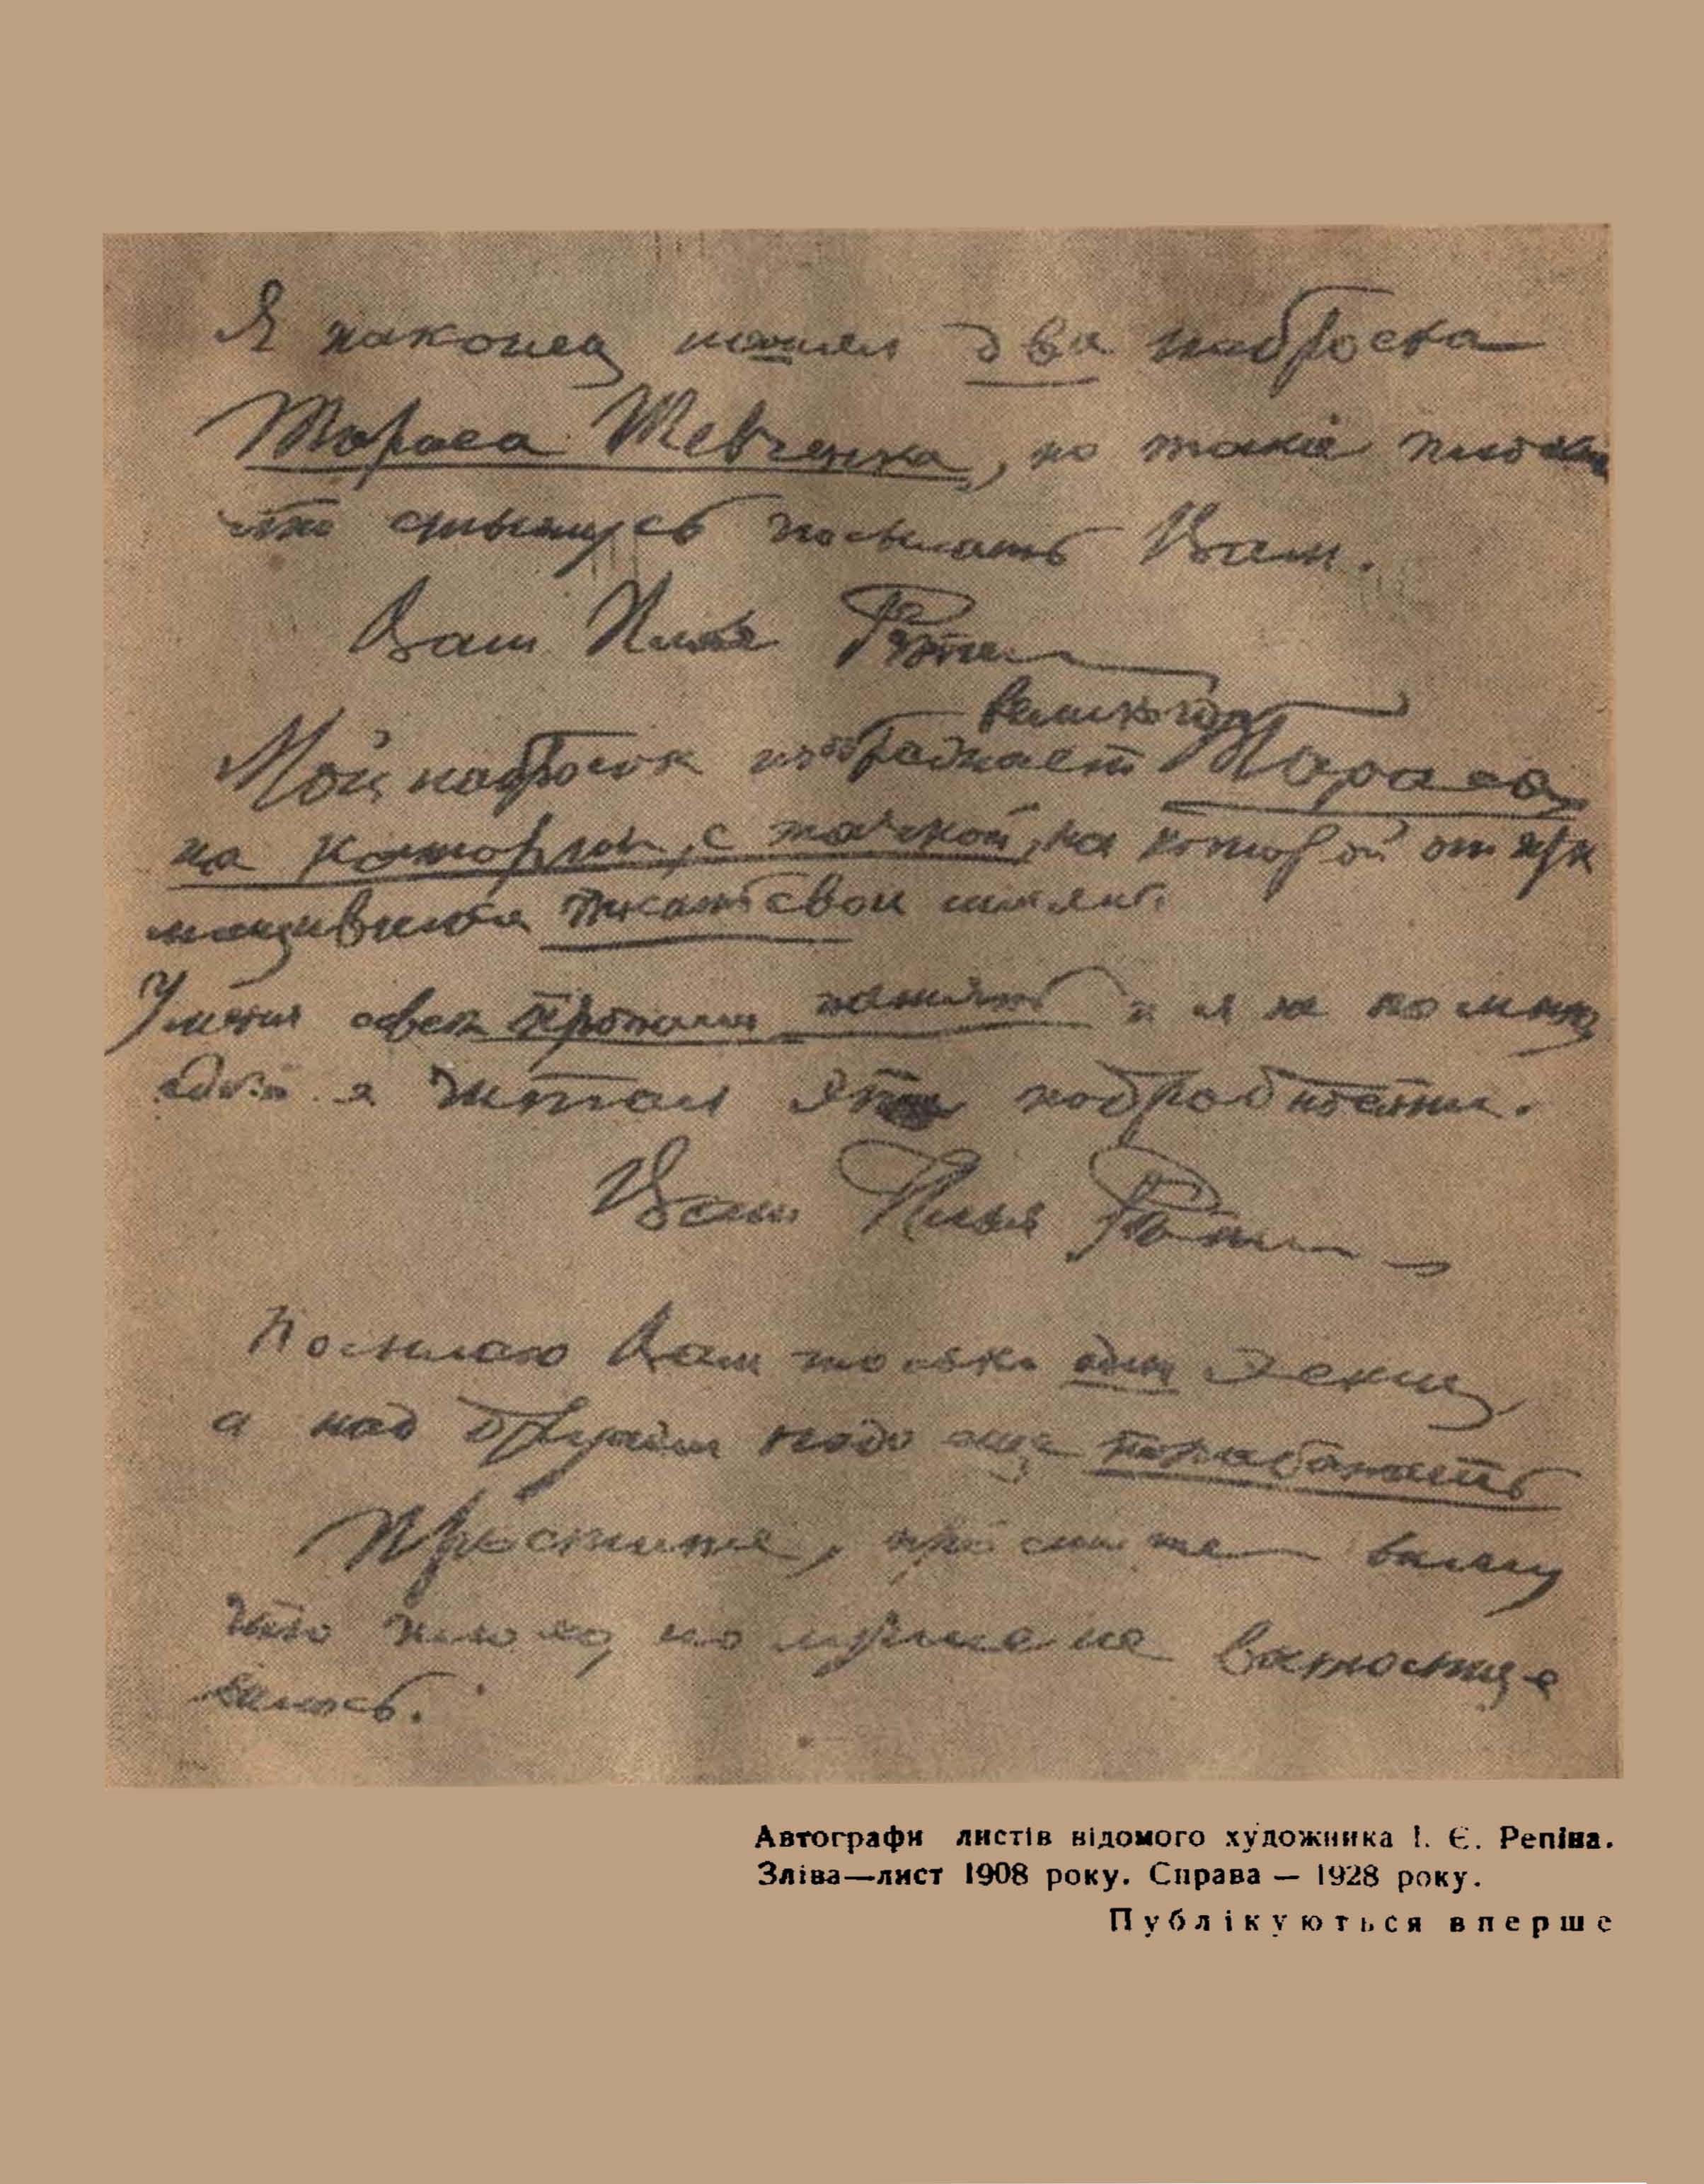 Я наконец нашел два наброска
Тараса Шевченка, но такие плохие
что стыжусь посылать Вам.
Ваш Илья Репин
великого
Мой набросок изображает Тараса,
на каторги, с тачкой, на которой он
писать свои
У меня совсем пропала память и я не помню
где я читал эти подробности.
Ваш Илья Репин
Посылаю Вам только один эскиз
а над другим надо еще поработать
Простите, простите вижу
что плохо, но лучше не
валось.
Автографи листів відомого художника І. Є. Репіна.
Зліва—лист 1908 року. Справа — 1928 року.
Публікуються вперше